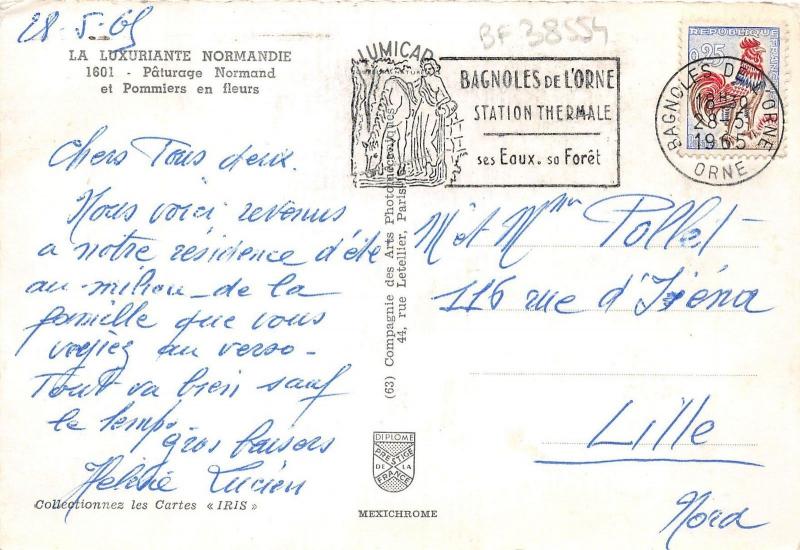 28-5-65
LA LUXURIANTE NORMANDIE
1601 - Pâturage Normand
et Pommiers en fleurs
Chers Tous deux.
Nous voici revenus
a notre résidence d'été
au-milieu de la
famille que vous
voyiez au verso-
Tout va bien sauf
le temps.
gros baisers
Hélène Lucien
Collectionnez les Cartes « IRIS »
(63) Compagnie des Arts Photomécaniques
44, rue Letellier, Paris
DIPLOME
PRESTIGE
DE LA
FRANCE
MEXICHROME
BF 38554
JUMICAR
BAGNOLES DE L'ORNE
STATION THERMALE
ses Eaux. sa Forêt
REPUBLIQUE FRANCAISE
0,25
BAGNOLES DE L'ORNE
18H30
28-5
1965
ORNE
M et Mme Pollet
116 rue d'Iéna
Lille
Nord